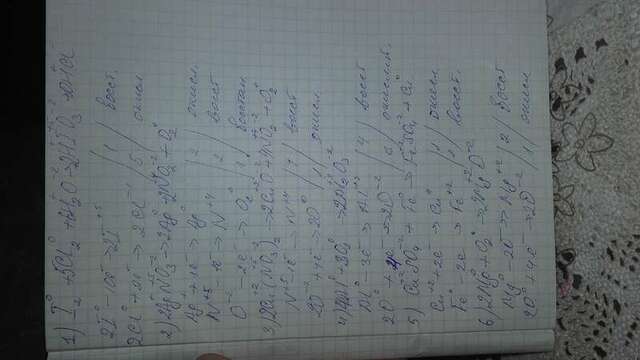 1) I₂⁰ + 5Cl₂⁰ + 6H₂O⁻² → 2HIO₃ + 10HCl
2I⁰ - 10e → 2I⁺⁵ | 1 | восст.
2Cl⁰ + 2e → 2Cl⁻¹ | 5 | окисл.
2) 2AgNO₃ → 2Ag⁰ + 2NO₂ + O₂⁰
Ag⁺ + 1e → Ag⁰ окисл.
N⁺⁵ - 1e → N⁺⁴ | 2 | восст
O⁻² - 2e → O₂⁰ восстан
3) 2Cu(NO₃)₂ → 2CuO + 4NO₂ + O₂⁰
N⁺⁵ + 1e → N⁺⁴ восст
2O⁻² + 4e → 2O⁰ | 1 | окисл
4) 4Al⁰ + 3O₂⁰ → 2Al₂O₃
Al⁰ - 3e → Al⁺³ | 4 | восст
2O⁰ + 4e → 2O⁻² окислит.
5) CuSO₄ + Fe⁰ → FeSO₄ + Cu⁰
Cu⁺² + 2e → Cu⁰ окисл.
Fe⁰ - 2e → Fe⁺² восст.
6) 2Mg⁰ + O₂⁰ → 2MgO⁻²
Mg⁰ - 2e → Mg⁺² | 2 | восст
2O⁰ - 4e → 2O⁻² | 1 | окисл